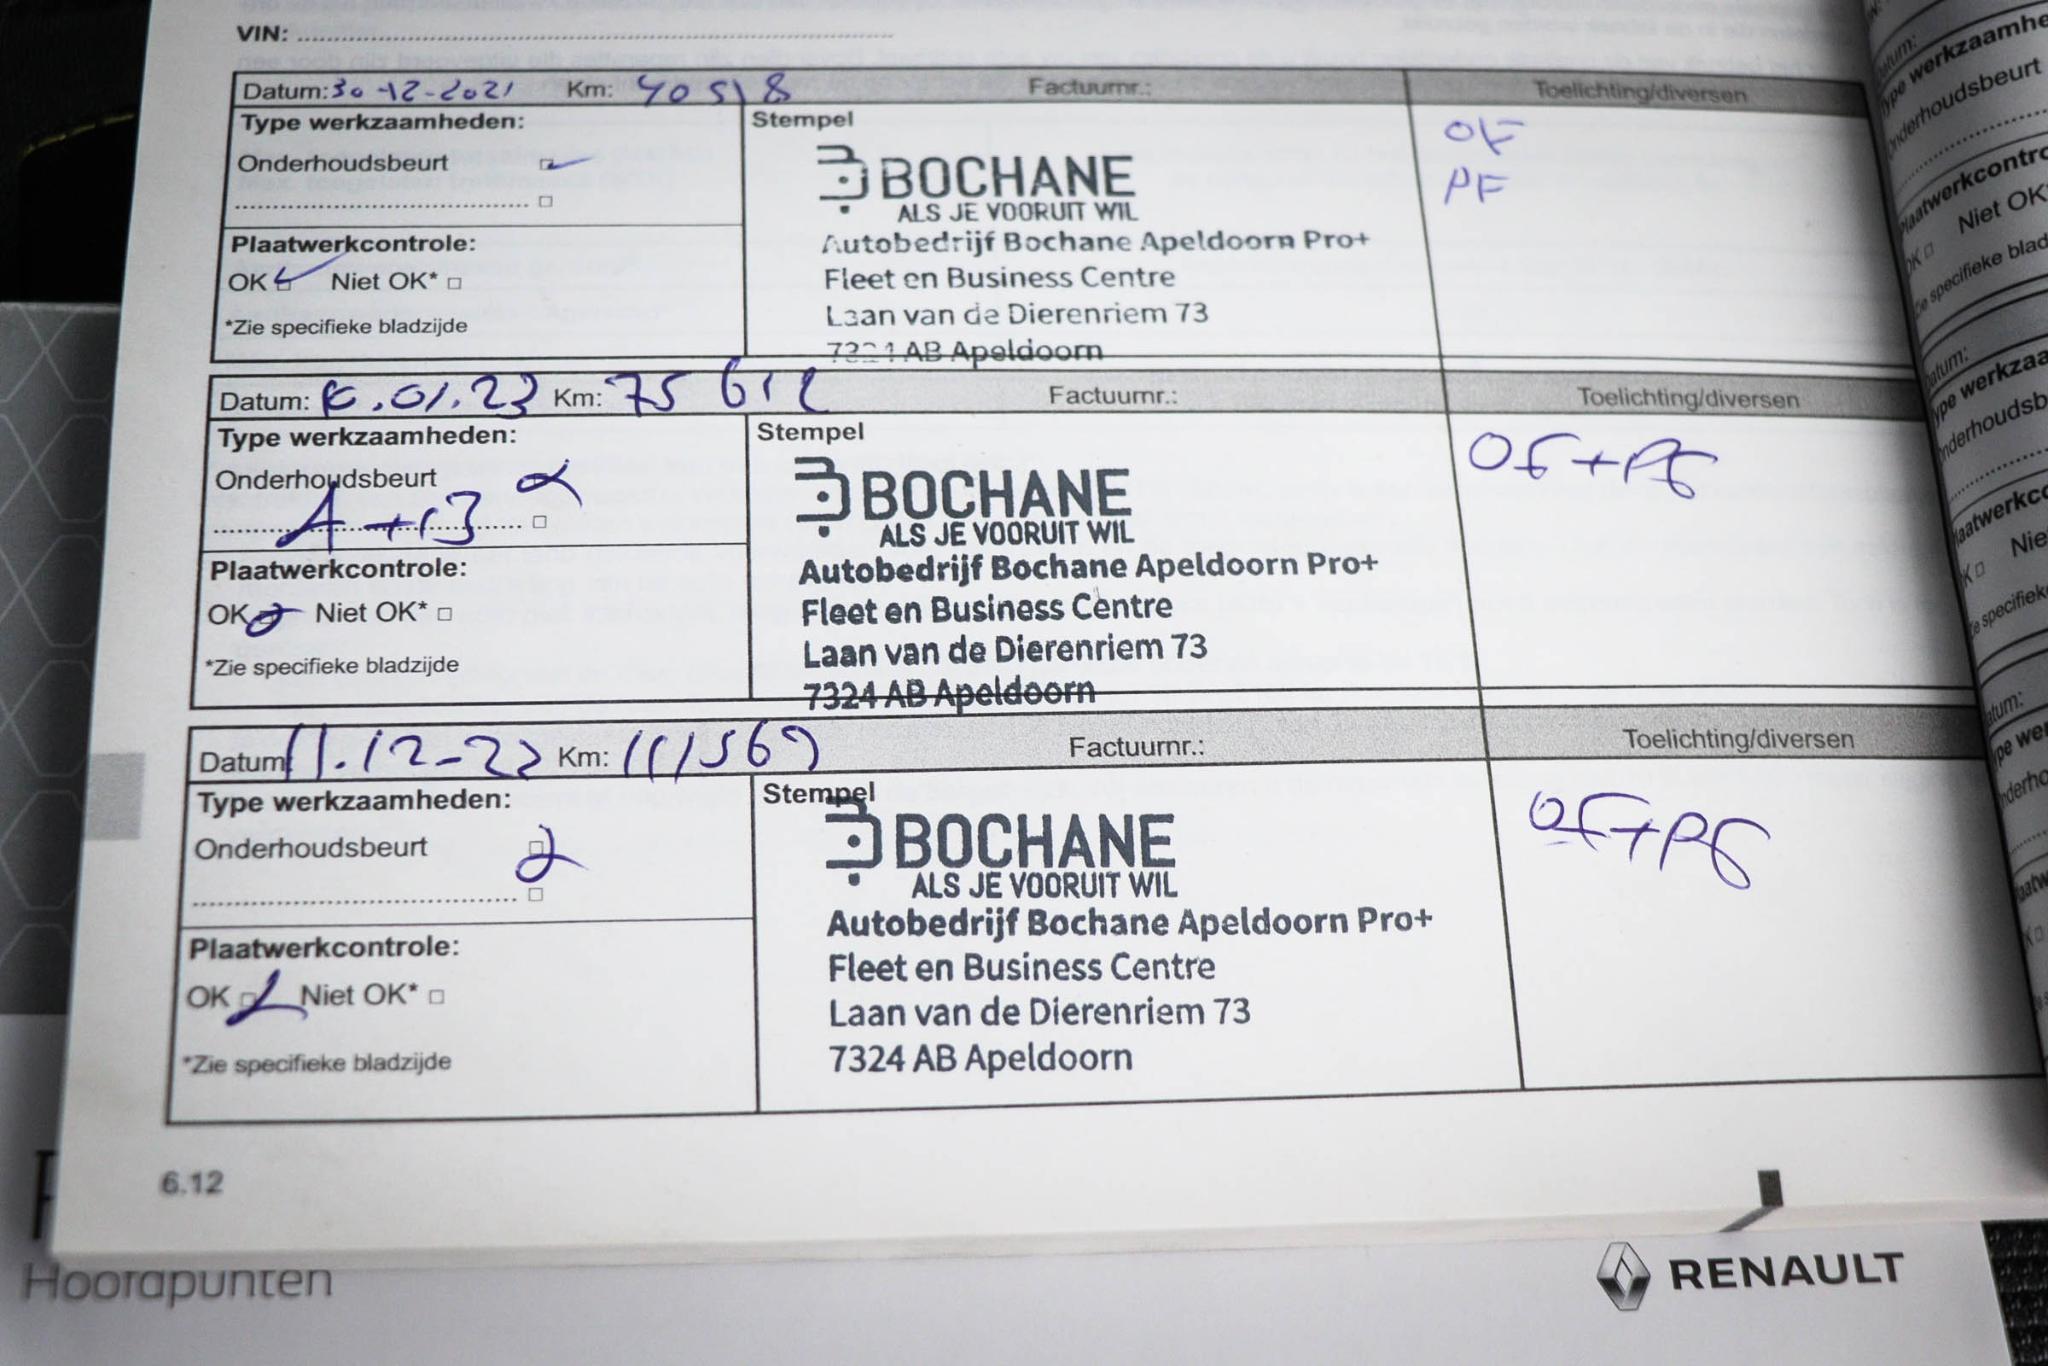 VIN:
Datum: 30-12-2021 Km: 40518 Factuurnr.: Toelichting/diversen
Type werkzaamheden: Stempel
OF
PF
Onderhoudsbeurt
BOCHANE
ALS JE VOORUIT WIL
Autobedrijf Bochane Apeldoorn Pro+
Fleet en Business Centre
Laan van de Dierenriem 73
7324 AB Apeldoorn
Plaatwerkcontrole:
OK Niet OK*
*Zie specifieke bladzijde
Datum: 10.01.23 Km: 75612 Factuurnr.: Toelichting/diversen
Type werkzaamheden: Stempel
OF+PF
Onderhoudsbeurt
BOCHANE
ALS JE VOORUIT WIL
Autobedrijf Bochane Apeldoorn Pro+
Fleet en Business Centre
Laan van de Dierenriem 73
7324 AB Apeldoorn
Plaatwerkcontrole:
OK Niet OK*
*Zie specifieke bladzijde
Datum: Km: Factuurnr.: Toelichting/diversen
Type werkzaamheden: Stempel
OF+PF
Onderhoudsbeurt
BOCHANE
ALS JE VOORUIT WIL
Autobedrijf Bochane Apeldoorn Pro+
Fleet en Business Centre
Laan van de Dierenriem 73
7324 AB Apeldoorn
Plaatwerkcontrole:
OK Niet OK*
*Zie specifieke bladzijde
6.12
Hoofdpunten
RENAULT